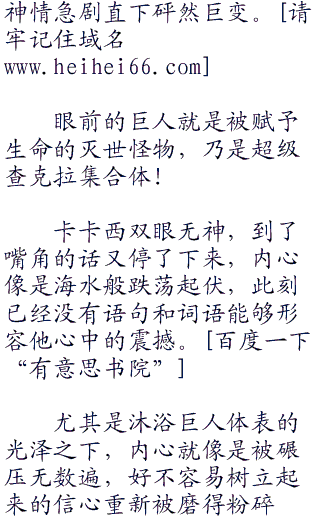 神情急剧直下砰然巨变。[请
牢记住域名
www.heihei66.com]
眼前的巨人就是被赋予
生命的灭世怪物，乃是超级
查克拉集合体！
卡卡西双眼无神，到了
嘴角的话又停了下来，内心
像是海水般跌荡起伏，此刻
已经没有语句和词语能够形
容他心中的震撼。[百度一下
“有意思书院”]
尤其是沐浴巨人体表的
光泽之下，内心就像是被碾
压无数遍，好不容易树立起
来的信心重新被磨得粉碎